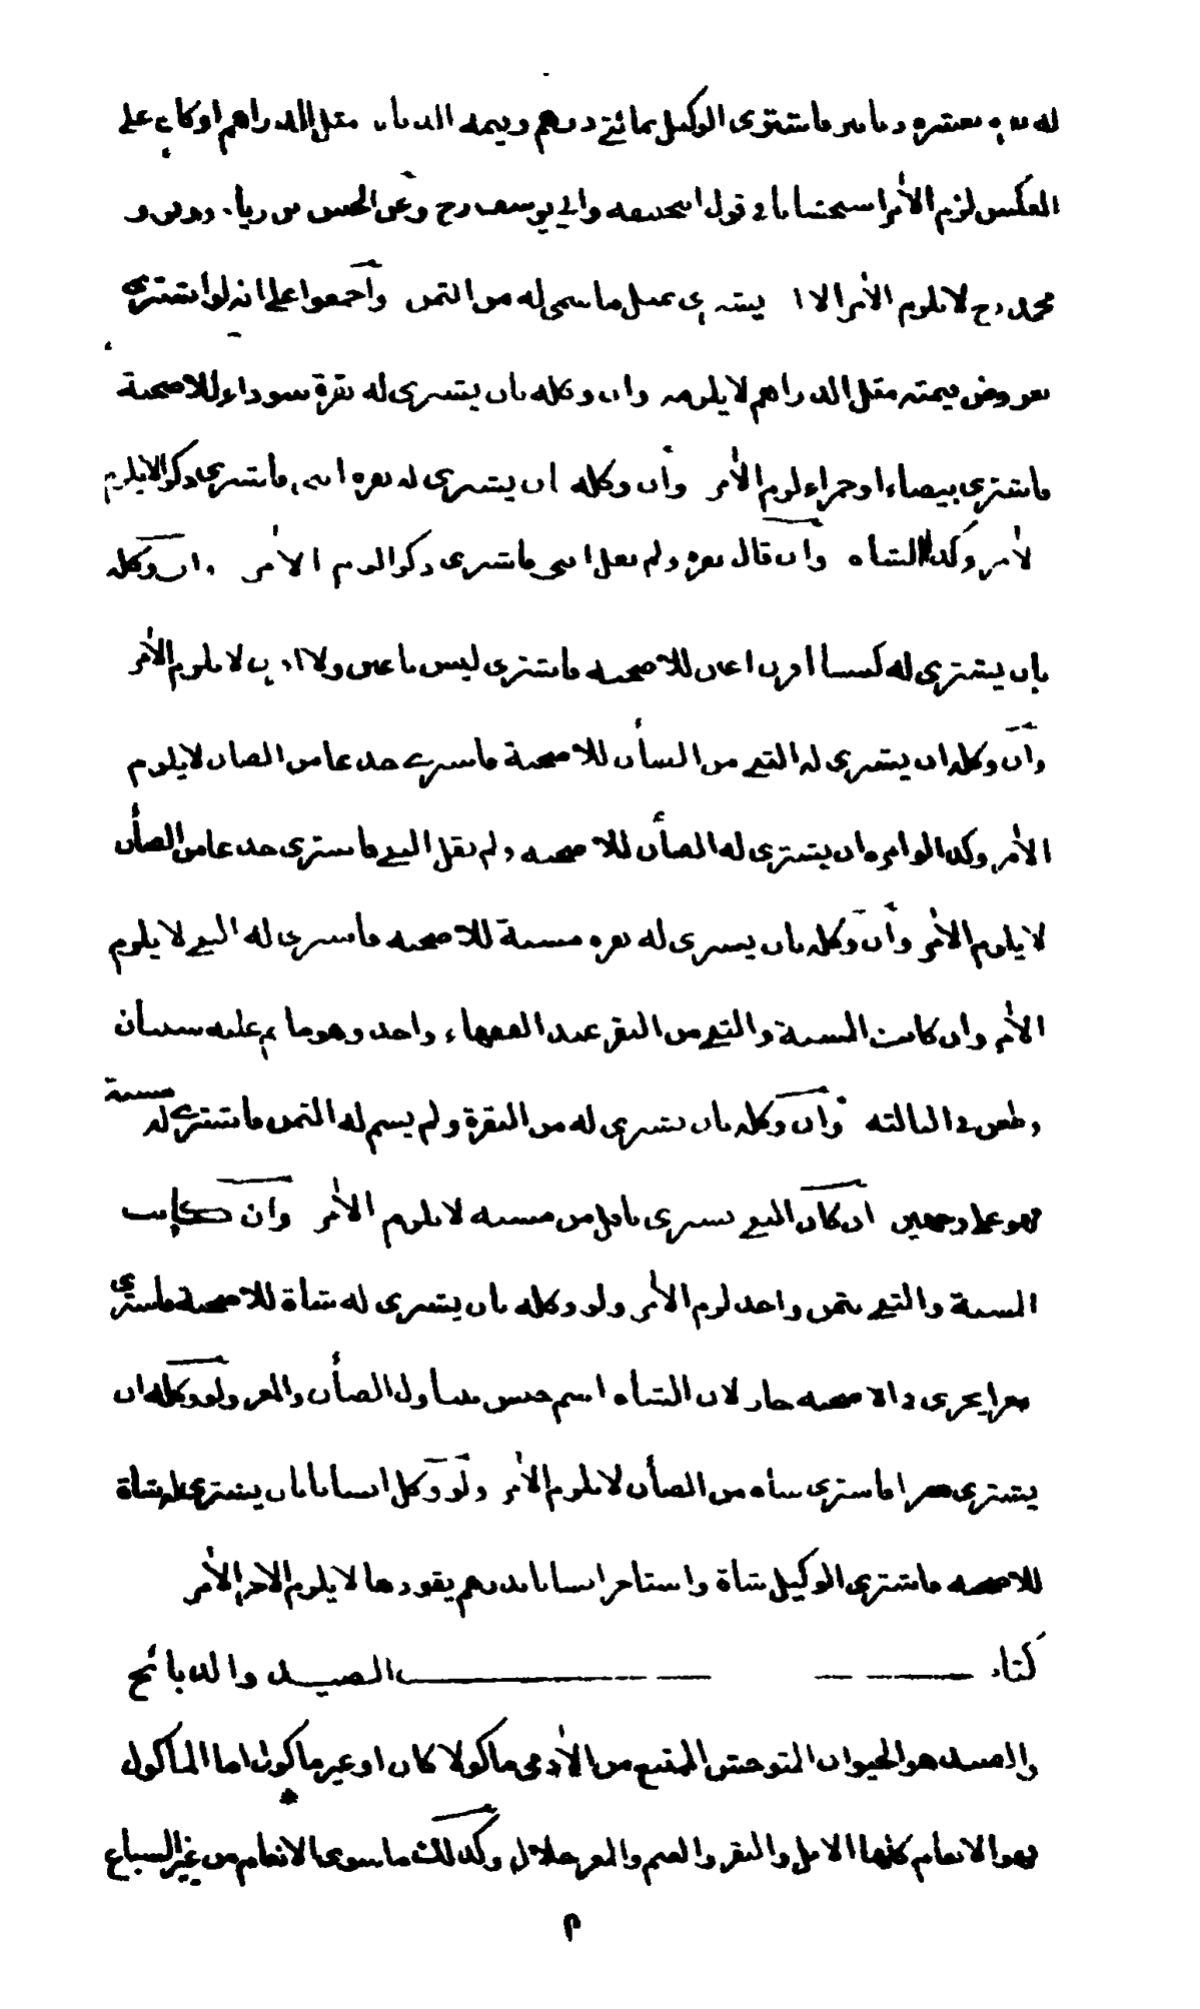 له بقرة بعشرة دنانير فاشترى الوكيل بمائتي درهم وقيمة الدنانير مثل الدراهم او كان على
العكس لزم الآمر استحسانا في قول ابي حنيفة وابي يوسف رح وعن الحسن بن زياد وزفر و
محمد رح لا يلزم الآمر الا ان يشتري بمثل ما سمى له من الثمن وأجمعوا على انه لو اشترى
بعروض قيمته مثل الدراهم لا يلزمه وان وكله بان يشترى له بقرة سوداء للاضحية
فاشترى بيضاء او حمراء لزم الآمر وأن وكله ان يشترى له بقرة انثى فاشترى ذكرا لا يلزم
لآمر وكذا الشاه وأن قال بقرة ولم يقل انثى فاشترى ذكرا لزم الآمر وان وكله
بان يشترى له كبشا اقرن اعين للاضحية فاشترى ليس باعين ولا اقرن لا يلزم الآمر
وأن وكله ان يشترى له الثنى من الضأن للاضحية فاشترى جذعا من الضان لا يلزم
الآمر وكذا لو امره ان يشترى له الضأن للاضحية ولم يقل الثنى فاشترى جذعا من الضأن
لا يلزم الآمر وأن وكله بان يشترى له بقرة مسنة للاضحية فاشترى له الثنى لا يلزم
الآمر وان كانت المسنة والثنى من البقر عند الفقهاء واحد وهو ما تم عليه سنتان
وطعن في الثالثة وأن وكله بان يشترى له من البقرة ولم يسم له الثمن فاشترى له مسنة
فهو على وجهين ان كان الثنى يشترى باقل من مسنه لا يلزم الآمر وان كانت
المسنة والثنى بثمن واحد لزم الآمر ولو وكله بان يشترى له شاة للاضحية فاشترى
معزا يجزى في الاضحيه جاز لان الشأه اسم جنس يتناول الضأن والمعز ولو وكله ان
يشترى معزا فاشترى شأه من الضأن لا يلزم الآمر ولو وكل انسانا بان يشترى له شاة
للاضحيه فاشترى الوكيل شاة واستاجر انسانا بدرهم يقودها لا يلزم الاجر الآمر
كتاب الصيد والذبائح
والصيد هو الحيوان المتوحش الممتنع من الآدمى ماكولا كان او غير ماكول اما الماكول
فهو الانعام كلها الابل والبقر والغنم والمعز حلال وكذلك ما سوى الانعام من غير السباع
م